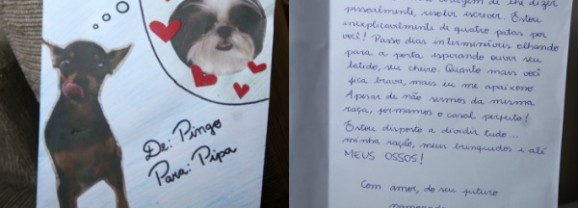 De: Pingo
Para: Pipa
coragem de lhe dizer
pessoalmente, resolvi escrever. Estou
inexplicavelmente de quatro patas por
você! Passo dias intermináveis olhando
para a porta esperando ouvir seu
latido, seu cheiro. Quanto mais você
fica brava, mais eu me apaixono.
Apesar de não sermos da mesma
raça, formamos o casal perfeito!
Estou disposto a dividir tudo...
minha ração, meus brinquedos e até
MEUS OSSOS!
Com amor, do seu futuro
namorado